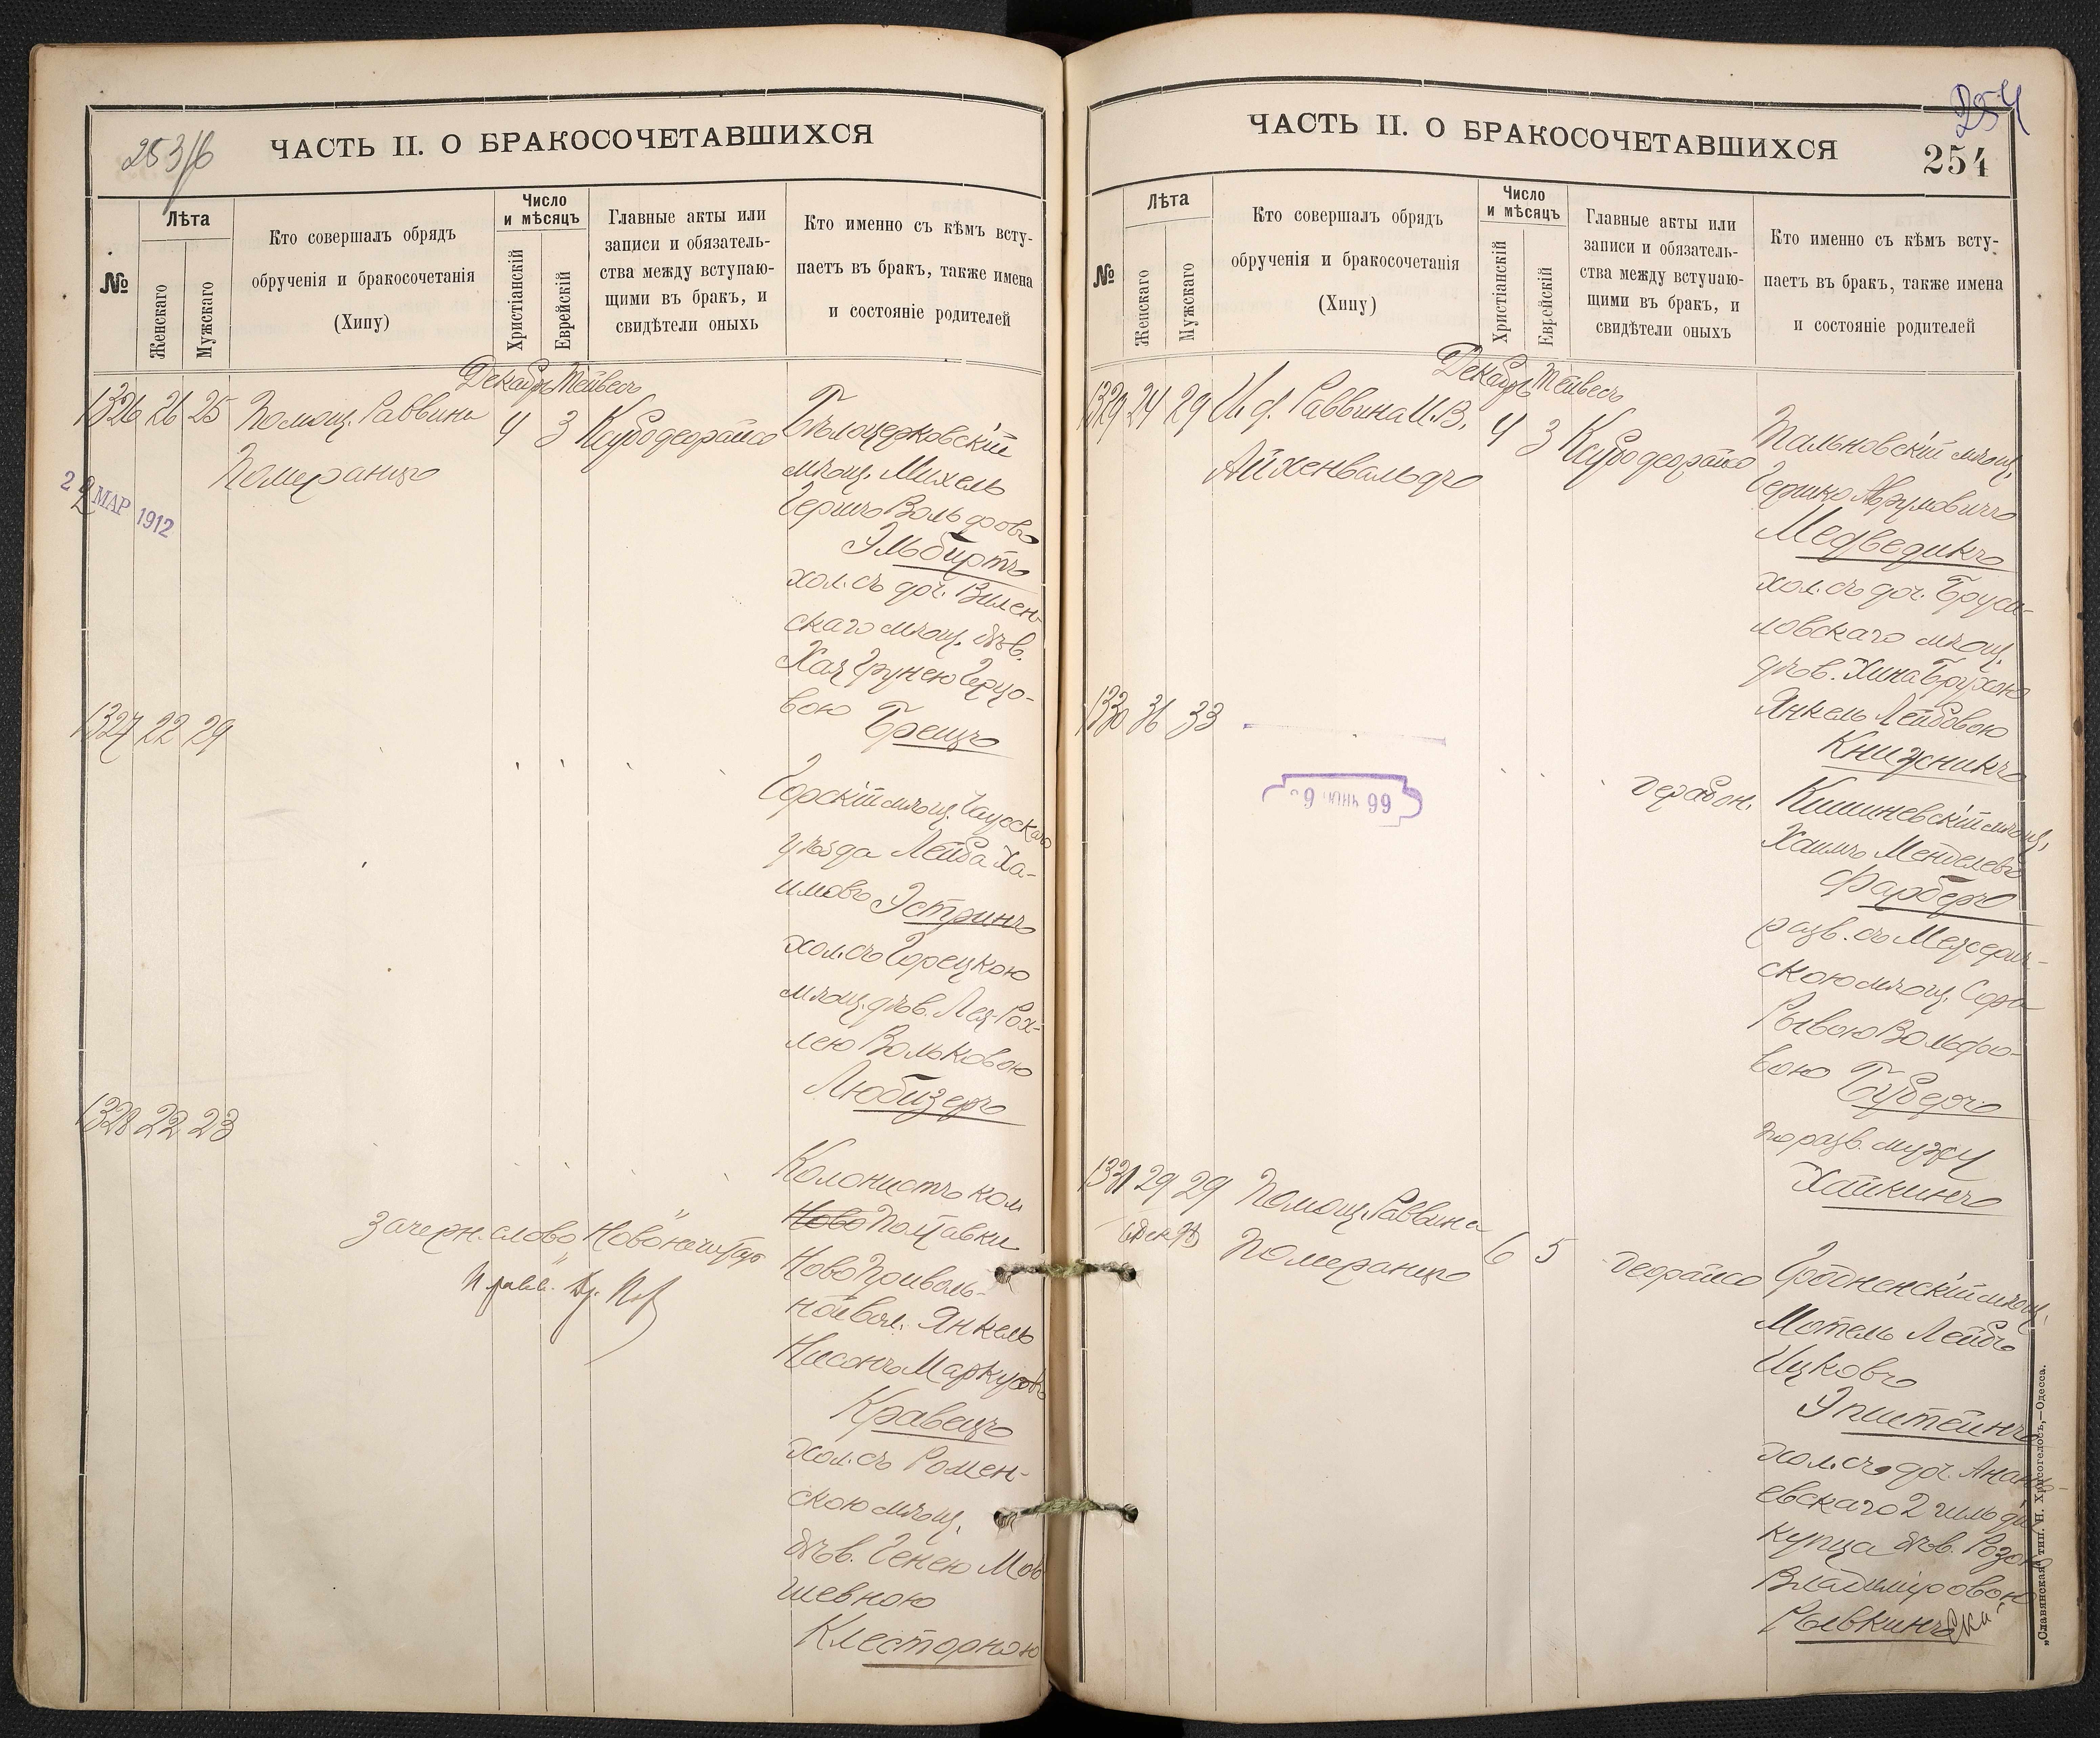 253/б
ЧАСТЬ II. О БРАКОСОЧЕТАВШИХСЯ
№
Лѣта
Женскаго
Мужскаго
Кто совершалъ обрядъ
обрученія и бракосочетанія
(Хипу)
Число
и мѣсяцъ
Христіанскій
Еврейскій
Главные акты или
записи и обязатель-
ства между вступаю-
щими въ бракъ, и
свидѣтели оныхъ
Кто именно съ кѣмъ всту-
паетъ въ бракъ, также имена
и состояніе родителей
Декабрь Тейвесъ
1326 26 25 Помощ. Раввина 4 3 Ксубо деорайсо
Померанцъ
МАР 1912
Бѣлоцерковскій
мѣщ. Михель
Гершъ Вольфовъ
Эльбиртъ
хол. съ доч. Вилен-
скаго мѣщ. дѣв.
Хая Грунею Герцо-
вою Брешъ
1327 22 29
Горскій мѣщ. Чаусскаго
уѣзда Лейба Ха-
имовъ Эстринъ
хол. съ Горецкою
мѣщ. дѣв. Лея-Рох-
лею Вольковою
Любизеръ
1328 22 23
Колонистъ кол.
Ново Полтавки
Ново Приволь-
ной вол. Янкель
Нисонъ Маркусовъ
Кравецъ
хол. съ Ромен-
скою мѣщ.
дѣв. Генею Мов-
шевною
Клесторною
Зачерн. слово „Ново“ не читать
254
ЧАСТЬ II. О БРАКОСОЧЕТАВШИХСЯ
254
№
Лѣта
Женскаго
Мужскаго
Кто совершалъ обрядъ
обрученія и бракосочетанія
(Хипу)
Число
и мѣсяцъ
Христіанскій
Еврейскій
Главные акты или
записи и обязатель-
ства между вступаю-
щими въ бракъ, и
свидѣтели оныхъ
Кто именно съ кѣмъ всту-
паетъ въ бракъ, также имена
и состояніе родителей
Декабрь Тейвесъ
1329 24 29 И. ф. Раввина И. В. 4 3 Ксубо деорайсо
Айхенвальдъ
Тальновскій мѣщ.
Гершко Аврумовичъ
Медведикъ
хол. съ доч. Бруси-
ловскаго мѣщ.
дѣв. Хина Брухою
Янкель Лейбовою
Книжникъ
1330 36 33
дерабон.
Кишиневскій мѣщ.
Хаимъ Менделевъ
Фарберъ
разв. съ Межерич-
скою мѣщ. Сура
Рывою Вольфо-
вою Буберъ
по разв. мужу
Хайкинъ
1331 29 29 Помощ. Раввина 6 5 деорайсо
Померанцъ
Гродненскій мѣщ.
Мотель Лейбъ
Ицковъ
Эпштейнъ
хол. съ доч. Анань-
евскаго 2 гильдіи
купца дѣв. Розою
Владиміровою
Рывкинъ
„Славянская“ тип. Н. Хрисогелосъ,—Одесса.